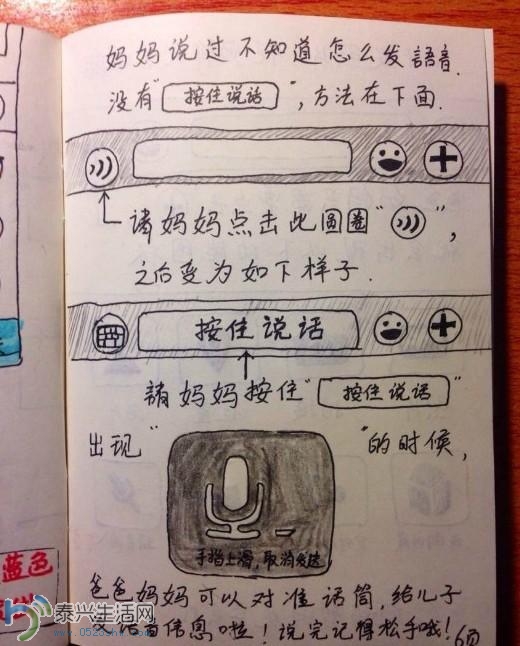 妈妈说过不知道怎么发語音.
没有"按住说话",方法在下面.
请妈妈点击此圆圈"",
之后变为如下样子.
按住说话
請妈妈按住"按住说话"
出现""的时候,
手指上滑,取消发送
爸爸妈妈可以对准话筒,给儿子
发语音信息啦!说完记得松手哦!
6页
蓝色
泰兴生活网